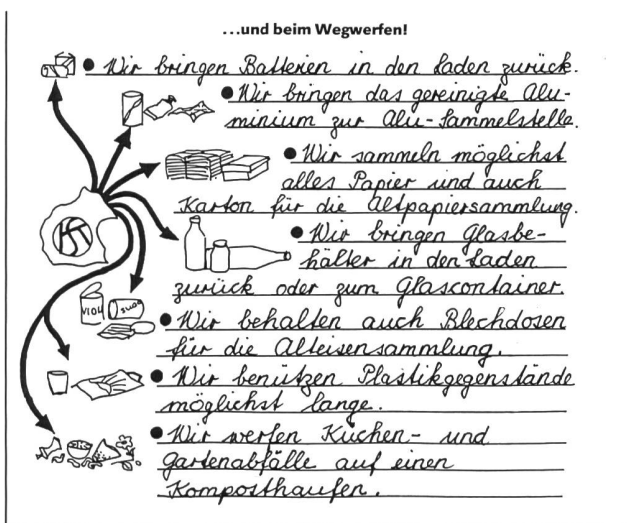 ...und beim Wegwerfen!
● Wir bringen Batterien in den Laden zurück.
● Wir bringen das gereinigte Alu-
minium zur Alu-Sammelstelle.
● Wir sammeln möglichst
alles Papier und auch
Karton für die Altpapiersammlung.
● Wir bringen Glasbe-
hälter in den Laden
zurück oder zum Glascontainer.
● Wir behalten auch Blechdosen
für die Alteisensammlung.
● Wir benützen Plastikgegenstände
möglichst lange.
● Wir werfen Küchen- und
Gartenabfälle auf einen
Komposthaufen.